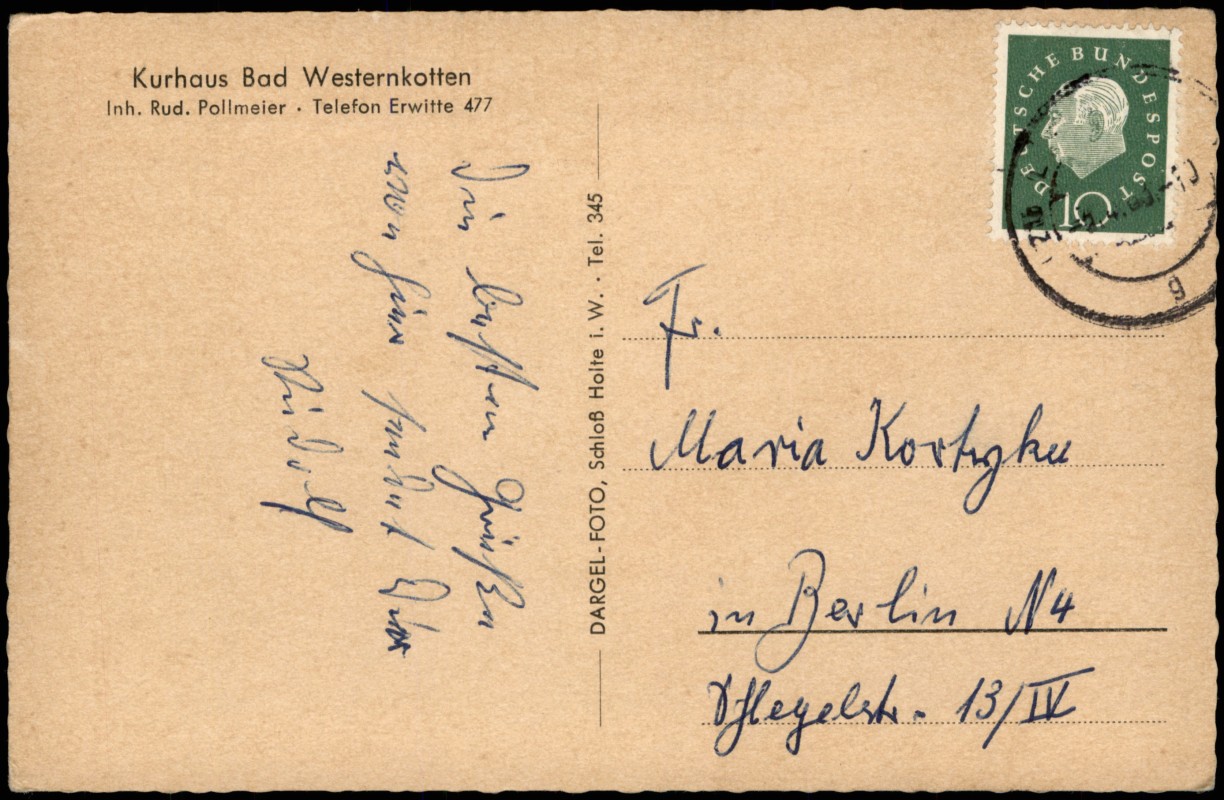 Kurhaus Bad Westernkotten
Inh. Rud. Pollmeier · Telefon Erwitte 477
Die besten Grüßen
von hier sendet Dir
Rudolf
DARGEL-FOTO, Schloß Holte i. W. · Tel. 345
DEUTSCHE BUNDESPOST
10
Fr.
Maria
in Berlin N4
Schlegelstr. 13/IV